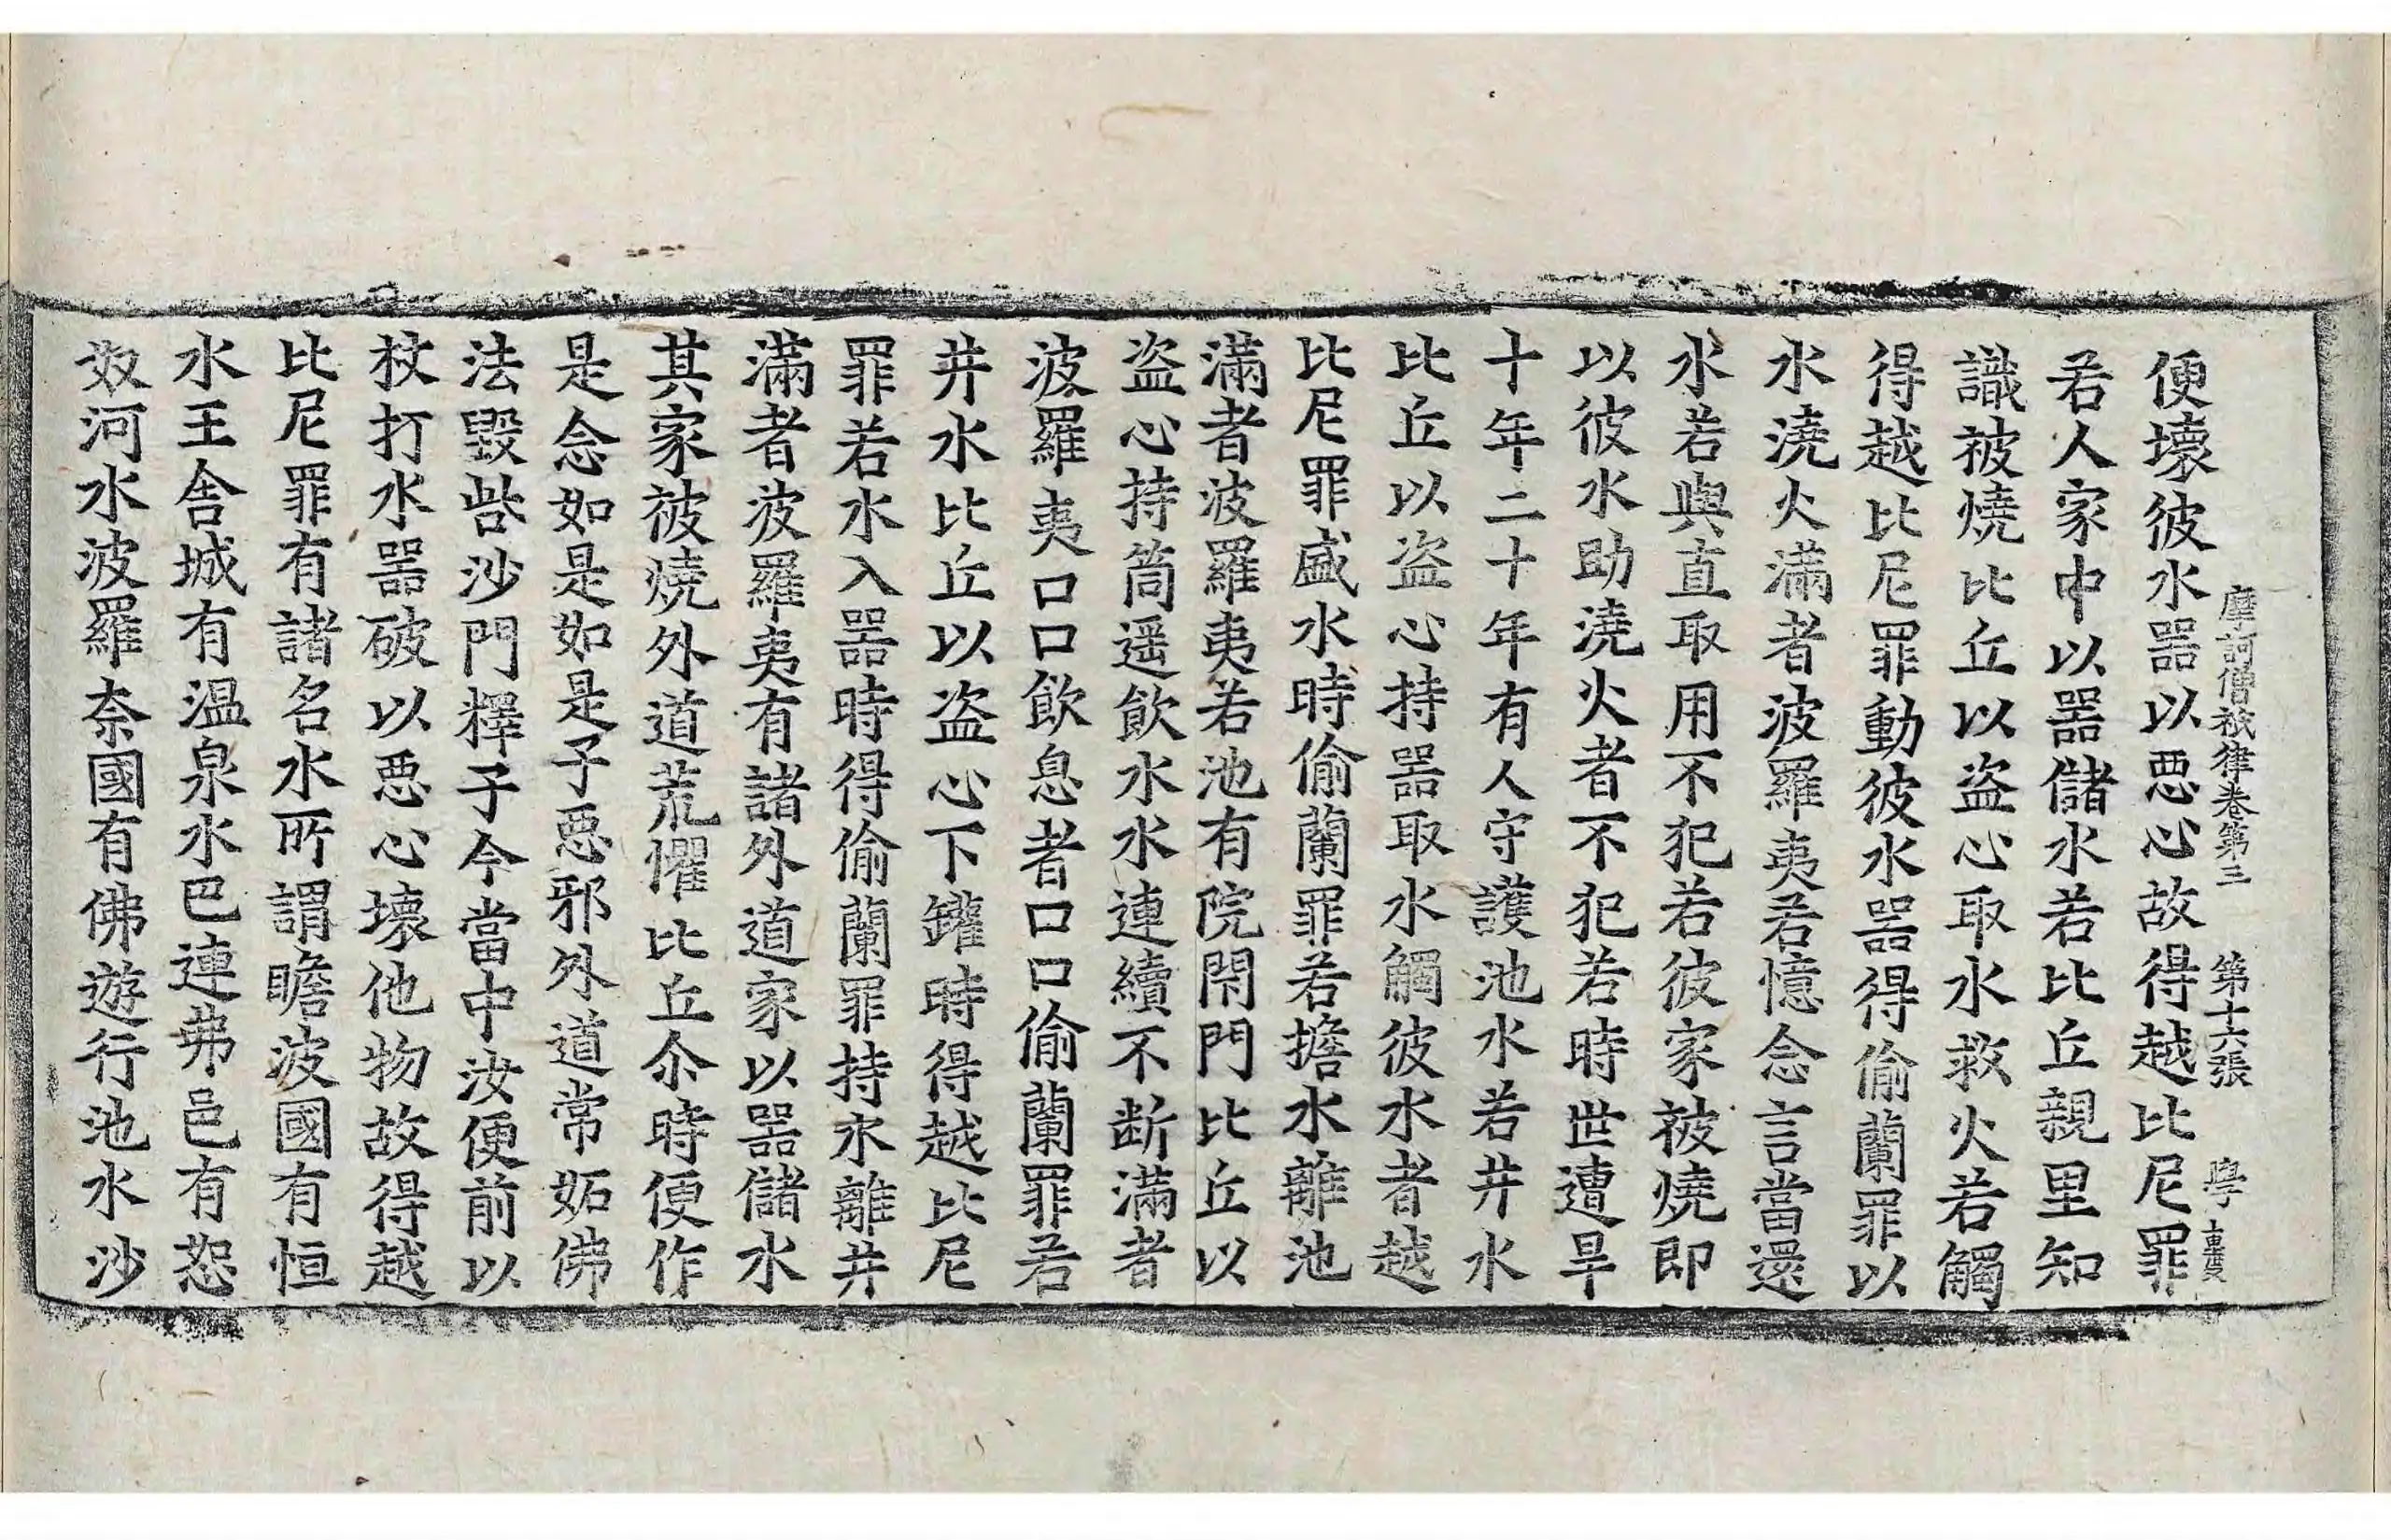 摩訶僧祇律卷第三 第十六張 學
便壞彼水器以惡心故得越比尼罪
若人家中以器儲水若比丘親里知
識被燒比丘以盜心取水救火若觸
得越比尼罪動彼水器得偷蘭罪以
水澆火滿者波羅夷若憶念言當還
水若與直取用不犯若彼家被燒即
以彼水助澆火者不犯若時世遭旱
十年二十年有人守護池水若井水
比丘以盜心持器取水觸彼水者越
比尼罪盛水時偷蘭罪若擔水離池
滿者波羅夷若池有院閇門比丘以
盜心持筒遥飲水水連續不断滿者
波羅夷口口飲息者口口偷蘭罪若
井水比丘以盜心下罐時得越比尼
罪若水入器時得偷蘭罪持水離井
滿者波羅夷有諸外道家以器儲水
其家被燒外道荒懼比丘尒時便作
是念如是如是子惡邪外道常妬佛
法毀呰沙門釋子今當中汝便前以
杖打水器破以惡心壞他物故得越
比尼罪有諸名水所謂瞻波國有恒
水王舍城有温泉水巴連弗邑有恕
奴河水波羅奈國有佛遊行池水沙